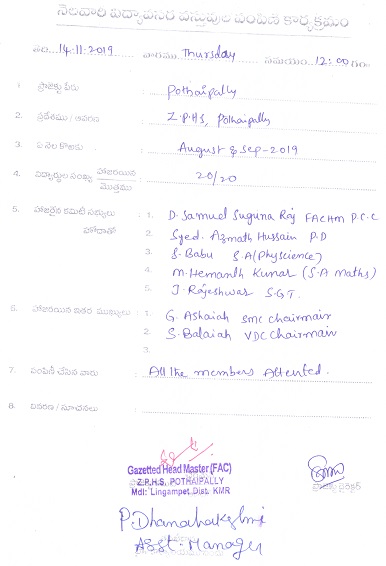 నెలవారి విద్యావసర వస్తువుల పంపిణి కార్యక్రమం
తేది. 14-11-2019 వారము Thursday సమయం. 12:00 గం.
1. ప్రాజెక్టు పేరు : Pothaipally
2. ప్రదేశము / ఆవరణ : Z.P.H.S, Pothaipally
3. ఏ నెల కొరకు : August & Sep-2019
4. విద్యార్థుల సంఖ్య హాజరయిన/మొత్తము : 20/20
5. హాజరైన కమిటీ సభ్యులు : 1. D. Samuel Suguna Raj FACHM P.C.C
హోదాతో 2. Syed. Azmath Hussain P.D
3. S. Babu S.A (Physcience)
4. M. Hemanth Kumar (S.A maths)
5. J. Rajeshwar S.G.T.
6. హాజరయిన ఇతర ముఖ్యులు : 1. G. Ashaiah SMC Chairman
2. S. Balaiah VDC Chairman
3.
7. పంపిణీ చేసిన వారు : All the members Attented.
8. వివరణ / సూచనలు :
Gazetted Head Master (FAC)
Z.P.H.S. POTHAIPALLY
Mdl: Lingampet, Dist. KMR
ప్రాజెక్ట్ డైరెక్టర్
P. Dhanalakshmi
Asst. Manager